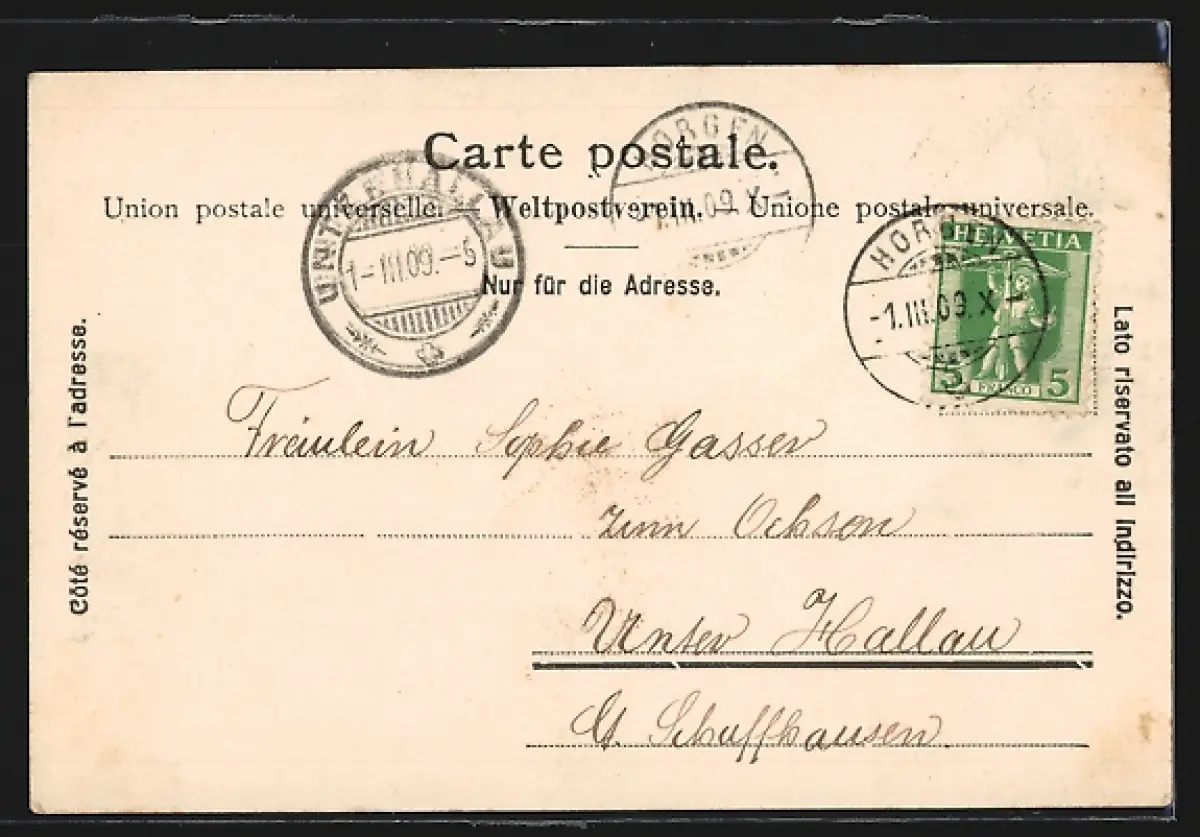 Carte postale.
Union postale universelle. — Weltpostverein. — Unione postale universale.
Nur für die Adresse.
HORGEN
1.III.09.X
UNTERHALLAU
1-III.09.-5
HORGEN
-1.III.09.X-
HELVETIA
5 FRANCO 5
Côté réservé à l'adresse.
Lato riservato all Indirizzo.
Fräulein Sophie Gasser
zum Ochsen
Unter Hallau
Ct. Schaffhausen.